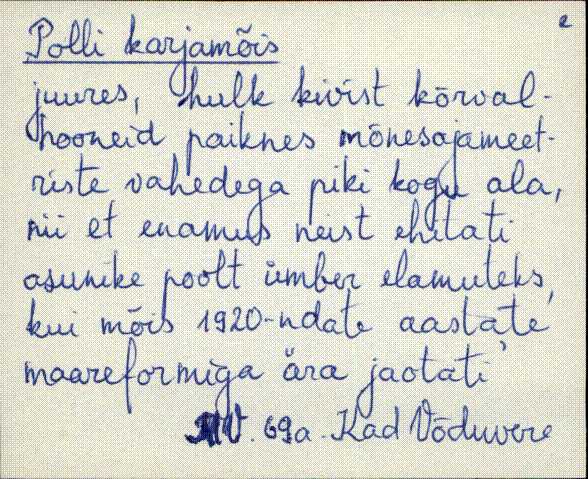 2
Polli karjamõis
juures, hulk kivist kõrval-
hooneid paiknes mõnesajameet-
riste vahedega piki kogu ala,
nii et enamus neist ehitati
asunike poolt ümber elamuteks,
kui mõis 1920-ndate aastate
maareformiga ära jaotati
V. 69a. Kad Võduvere